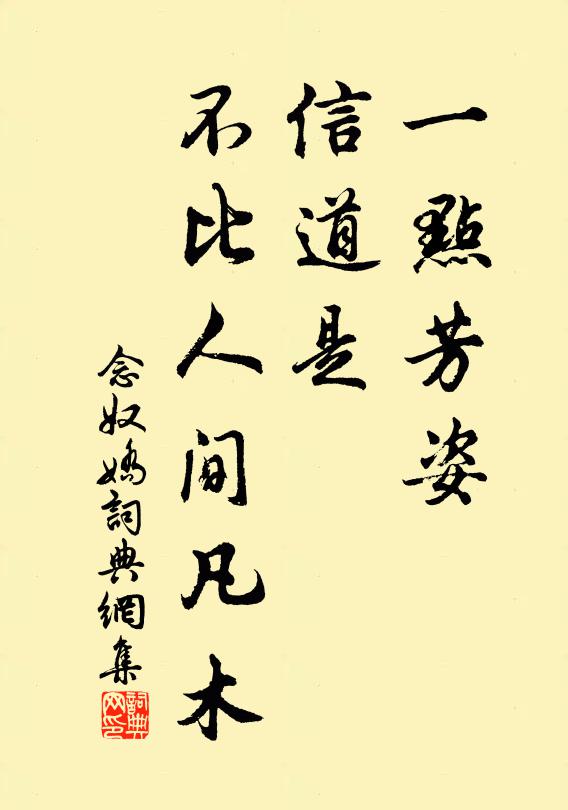 一點芳姿
信道是
不比人間凡木
念奴嬌詞典網集
詞典網印